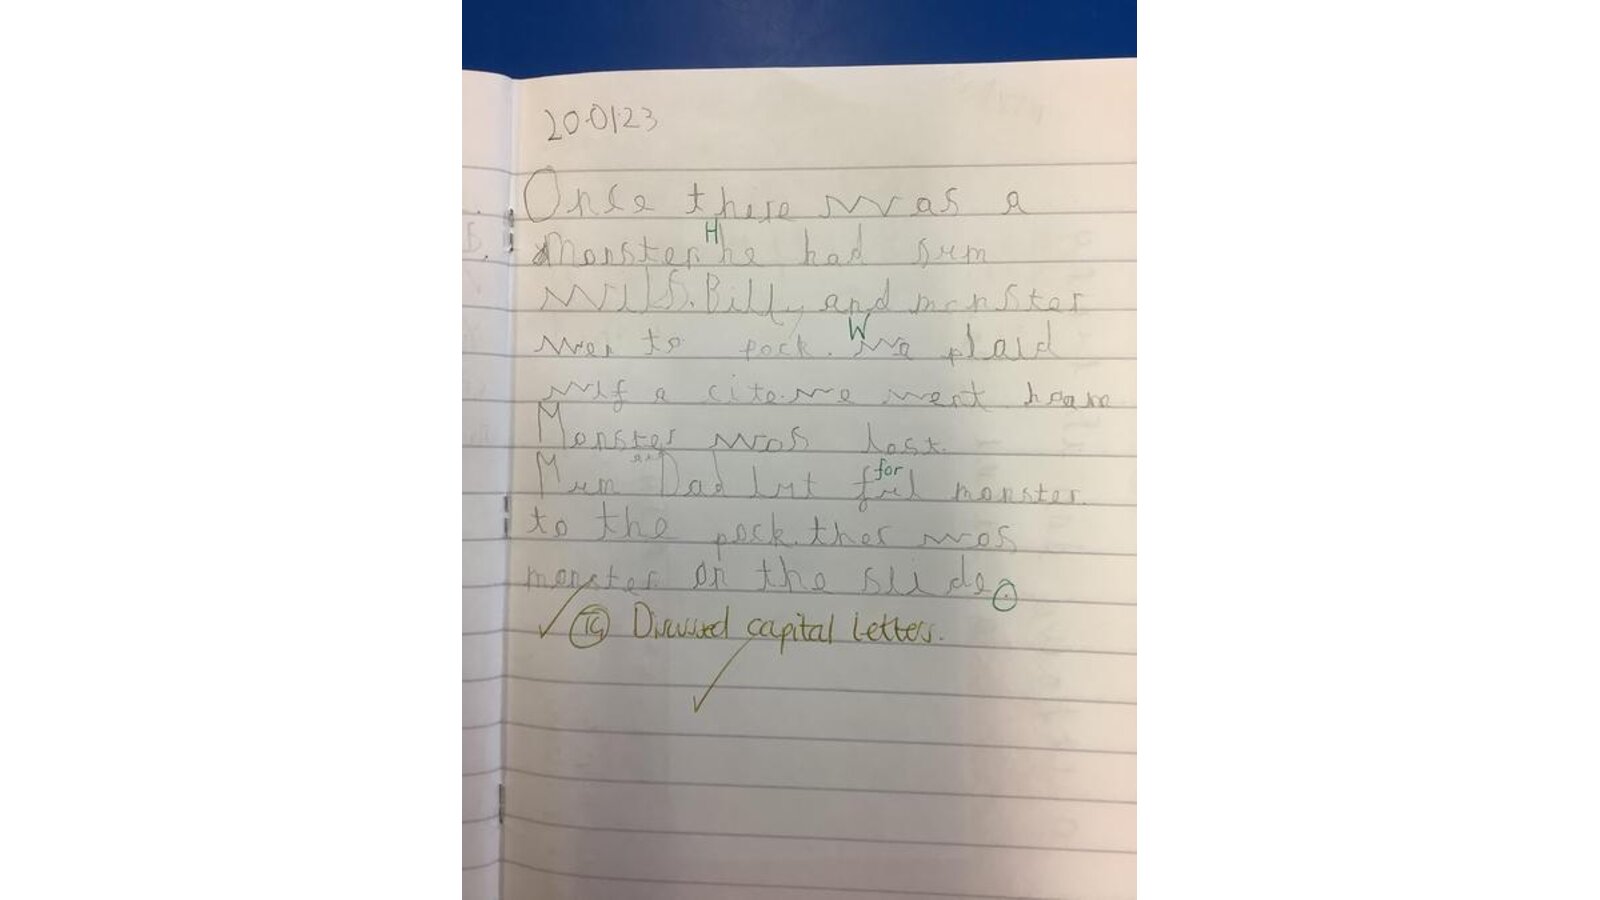 20.01.23
Once there was a
Monster. H he had sum
wils. Billy and monster
wen to pock. W we plaid
wif a cite. we went
Monster was lost.
Mum and Dad lut for monster.
to the pock. ther was
monster on the slide.
TG Discussed capital letters.